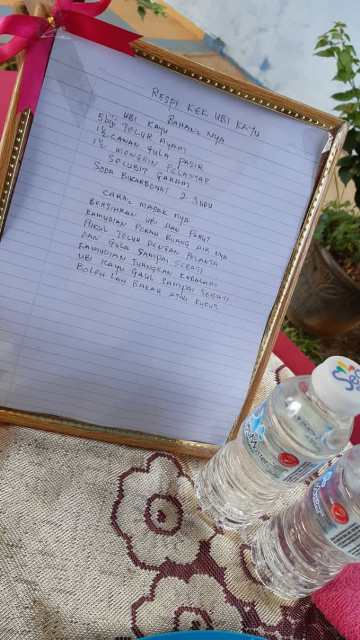 RESPI KEK UBI KAYU
BAHAN2 NYA
UBI KAYU
5 biji TELUR AYAM
1½ CAWAN GULA PASIR
1½ MENGERIN PELANTAP
SECUBIT GARAM
SODA BIKARBONAT 2 SUDU
CARA2 MASAK NYA
BERSIHKAN UBI DAN PARUT
KEMUDIAN PERAH BUANG AIR NYA
PUKUL TELUR DENGAN PELANTA
DAN GULA SAMPAI SEBATI
KEMUDIAN TUANGKAN KEDALAM
UBI KAYU GAUL SAMPAI SEBATI
BOLEH LAH BAKAR ATAU KUKUS